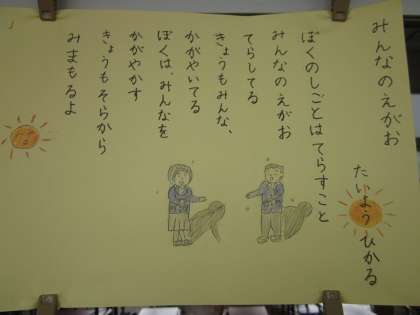 みんなのえがお
たいようひかる
ぼくのしごとはてらすこと
みんなのえがお
てらしてる
きょうもみんな、
かがやいてる
ぼくは、みんなを
かがやかす
きょうもそらから
みまもるよ